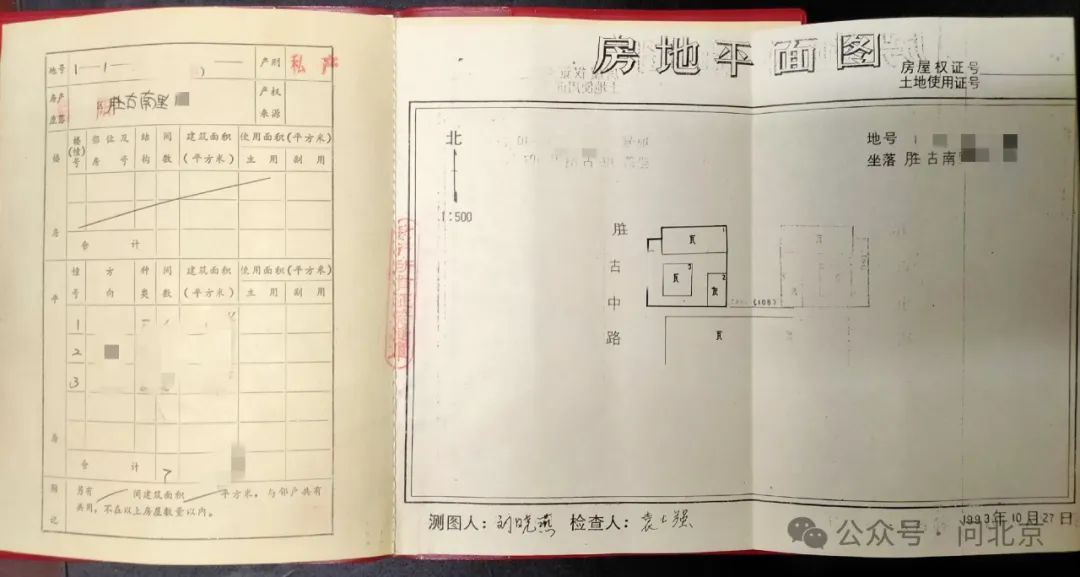 地号 1—1— — 产别 私产
房产坐落 胜古南里 产权来源
楼房 楼(幢)号 部位及房号 结构 间数 建筑面积(平方米) 使用面积(平方米)
主用 副用
合计
平房 幢号 方向 种类 间数 建筑面积(平方米) 使用面积(平方米)
主用 副用
1
2
3
合计 7
附记 另有 间建筑面积 平方米，与邻户共有
共用，不在以上房屋数量以内。
房地平面图
房屋权证号
土地使用证号
北
1:500
地号 1
坐落 胜古南
胜古中路
1
3
2
(108)
测图人：刘晓燕 检查人：
1993年10月27日
公众号·问北京